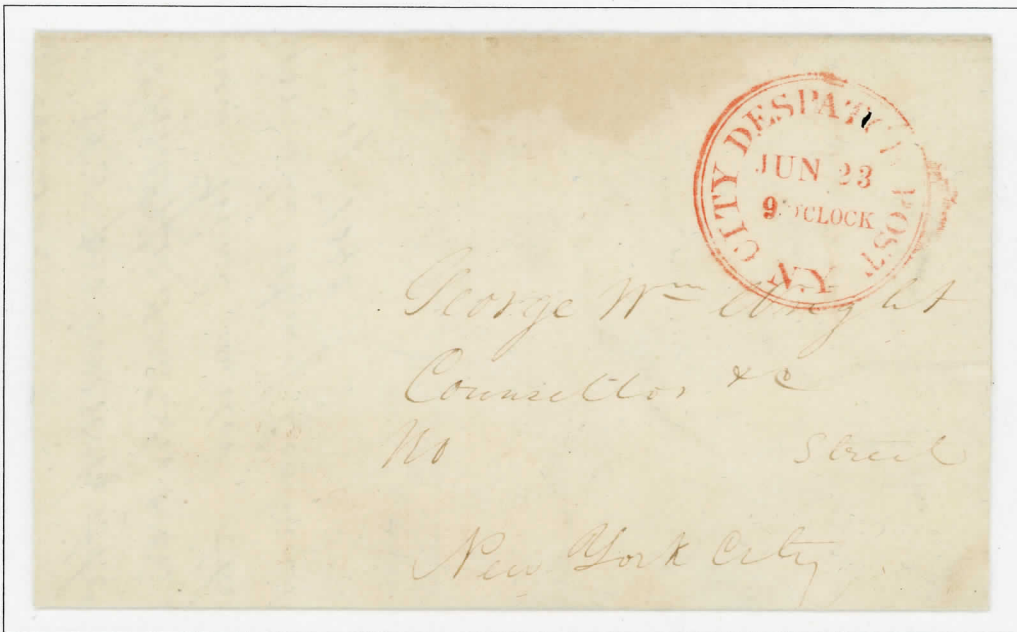 CITY DESPATCH POST
JUN 23
9 O'CLOCK
N.Y.
George Wm Wright
Counsellor &c
No Street
New York City